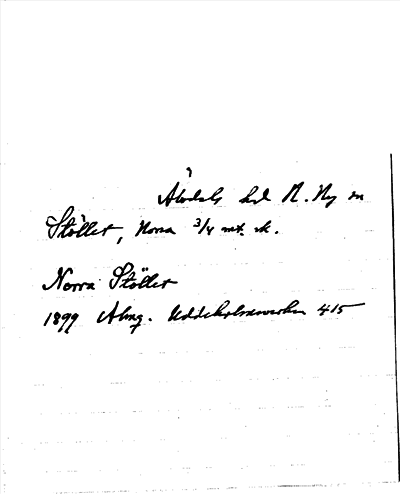 Älvdals hd N. Ny sn
Stöllet, Norra 3/4 mt. sk.
Norra Stöllet
1899 Afmg. Uddeholmsverken 415